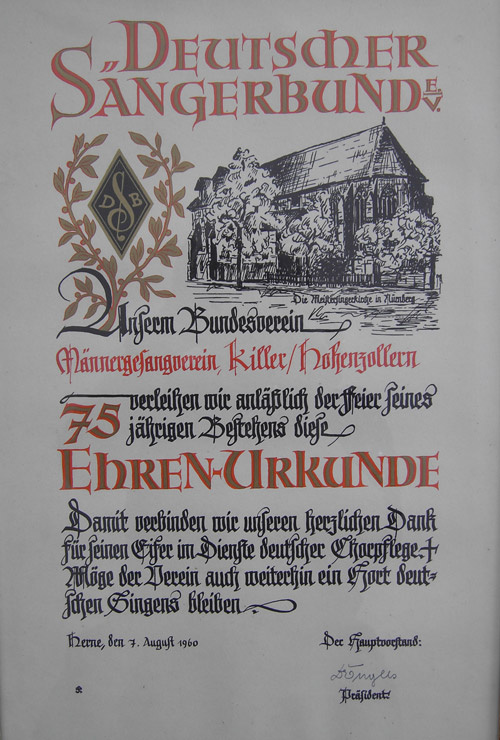 „Deutscher
Sängerbund E.V.
DSB
Die Meistersingerkirche in Nürnberg
Unserm Bundesverein
Männergesangverein, Killer/Hohenzollern
75 verleihen wir anläßlich der Feier seines
jährigen Bestehens diese
Ehren-Urkunde
Damit verbinden wir unseren herzlichen Dank
für seinen Eifer im Dienste deutscher Chorpflege +
Möge der Verein auch weiterhin ein Hort deut-
schen Singens bleiben
Herne, den 7. August 1960
Der Hauptvorstand:
Präsident: